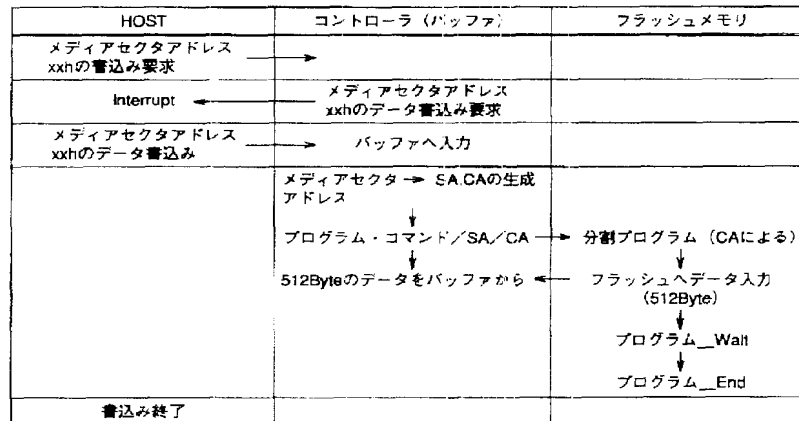 HOST
コントローラ（バッファ）
フラッシュメモリ
メディアセクタアドレス
xxhの書込み要求
Interrupt
メディアセクタアドレス
xxhのデータ書込み要求
メディアセクタアドレス
xxhのデータ書込み
バッファへ入力
メディアセクタ→ SA.CAの生成
アドレス
プログラム・コマンド／SA／CA
分割プログラム（CAによる）
512Byteのデータをバッファから
フラッシュへデータ入力
（512Byte）
プログラム__Wait
プログラム__End
書込み終了